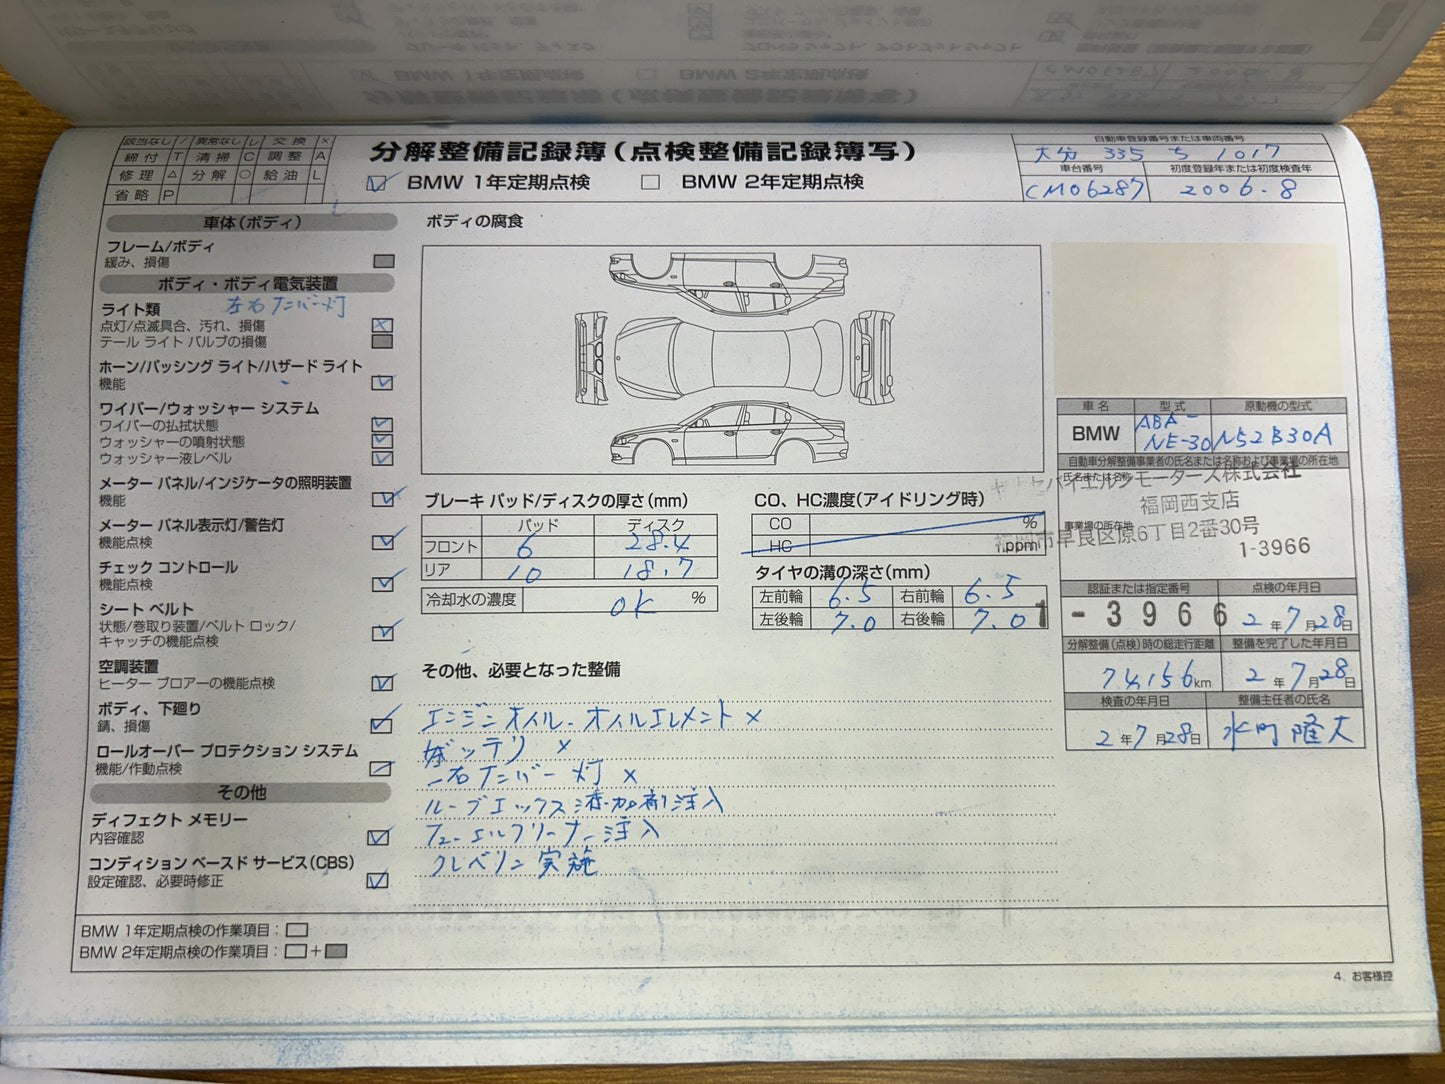 該当なし / 異常なし レ 交換 ×
締付 T 清掃 C 調整 A
修理 △ 分解 ○ 給油 L
省略 P
分解整備記録簿(点検整備記録簿写)
BMW 1年定期点検 BMW 2年定期点検
自動車登録番号または車両番号
大分 335 ち 1017
車台番号 初度登録年または初度検査年
CM06287 2006.8
車体(ボディ)
フレーム/ボディ
緩み、損傷
ボディ・ボディ電気装置
ライト類 左右ナンバー灯
点灯/点滅具合、汚れ、損傷
テール ライト バルブの損傷
ホーン/パッシング ライト/ハザード ライト
機能
ワイパー/ウォッシャー システム
ワイパーの払拭状態
ウォッシャーの噴射状態
ウォッシャー液レベル
メーター パネル/インジケータの照明装置
機能
メーター パネル表示灯/警告灯
機能点検
チェック コントロール
機能点検
シート ベルト
状態/巻取り装置/ベルト ロック/
キャッチの機能点検
空調装置
ヒーター ブロアーの機能点検
ボディ、下廻り
錆、損傷
ロールオーバー プロテクション システム
機能/作動点検
その他
ディフェクト メモリー
内容確認
コンディション ベースド サービス(CBS)
設定確認、必要時修正
ボディの腐食
ブレーキ パッド/ディスクの厚さ(mm)
パッド ディスク
フロント 6 28.4
リア 10 18.7
冷却水の濃度 OK %
CO、HC濃度(アイドリング時)
CO %
HC ppm
タイヤの溝の深さ(mm)
左前輪 6.5 右前輪 6.5
左後輪 7.0 右後輪 7.0
その他、必要となった整備
エンジンオイル・オイルエレメント ×
バッテリ ×
右ナンバー灯 ×
ループエックス添加剤注入
フューエルクリーナー注入
クレベリン実施
車名 型式 原動機の型式
BMW ABA-NE-30 N52B30A
自動車分解整備事業者の氏名または名称および事業場の所在地
氏名または名称
モーターズ株式会社
福岡西支店
事業場の所在地
市早良区原6丁目2番30号
1-3966
認証または指定番号 点検の年月日
1-3966 2年7月28日
分解整備(点検)時の総走行距離 整備を完了した年月日
74,156km 2年7月28日
検査の年月日 整備主任者の氏名
2年7月28日
BMW 1年定期点検の作業項目:
BMW 2年定期点検の作業項目: +
4. お客様控